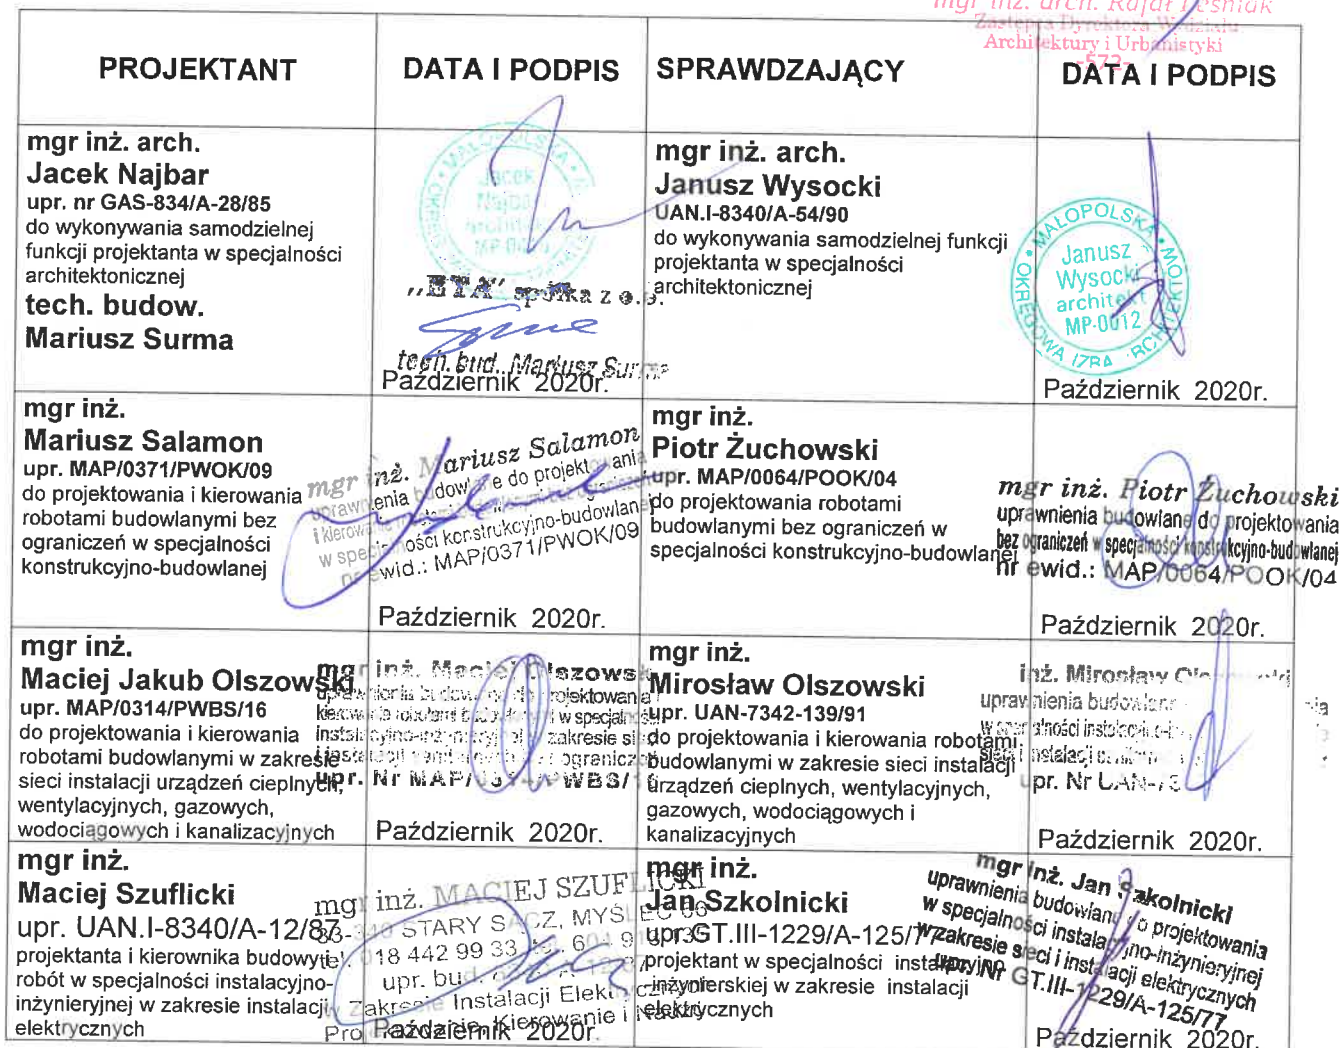 mgr inż. arch. Rafał Leśniak
Zastępca Dyrektora Wydziału
Architektury i Urbanistyki
-572-
PROJEKTANT
DATA I PODPIS
SPRAWDZAJĄCY
DATA I PODPIS
mgr inż. arch.
Jacek Najbar
upr. nr GAS-834/A-28/85
do wykonywania samodzielnej
funkcji projektanta w specjalności
architektonicznej
tech. budow.
Mariusz Surma
MAŁOPOLSKA
Jacek
Najbar
architekt
„ETA” spółka z o.o.
tech. bud. Mariusz Surma
Październik 2020r.
mgr inż. arch.
Janusz Wysocki
UAN.I-8340/A-54/90
do wykonywania samodzielnej funkcji
projektanta w specjalności
architektonicznej
MAŁOPOLSKA OKRĘGOWA IZBA ARCHITEKTÓW
Janusz
Wysocki
architekt
MP-0012
Październik 2020r.
mgr inż.
Mariusz Salamon
upr. MAP/0371/PWOK/09
do projektowania i kierowania
robotami budowlanymi bez
ograniczeń w specjalności
konstrukcyjno-budowlanej
mgr inż. Mariusz Salamon
uprawnienia budowlane do projektowania
i kierowania
w specjalności konstrukcyjno-budowlanej
nr ewid.: MAP/0371/PWOK/09
Październik 2020r.
mgr inż.
Piotr Żuchowski
upr. MAP/0064/POOK/04
do projektowania robotami
budowlanymi bez ograniczeń w
specjalności konstrukcyjno-budowlanej
mgr inż. Piotr Żuchowski
uprawnienia budowlane do projektowania
bez ograniczeń w specjalności konstrukcyjno-budowlanej
nr ewid.: MAP/0064/POOK/04
Październik 2020r.
mgr inż.
Maciej Jakub Olszowski
upr. MAP/0314/PWBS/16
do projektowania i kierowania
robotami budowlanymi w zakresie
sieci instalacji urządzeń cieplnych,
wentylacyjnych, gazowych,
wodociągowych i kanalizacyjnych
mgr inż. Maciej Olszowski
uprawnienia budowlane do projektowania i
kierowania robotami budowlanymi w specjalności
instalacyjno-inżynieryjnej w zakresie sieci
i instalacji sanitarnych bez ograniczeń
upr. Nr MAP/0314/PWBS/16
Październik 2020r.
mgr inż.
Mirosław Olszowski
upr. UAN-7342-139/91
do projektowania i kierowania robotami
budowlanymi w zakresie sieci instalacji
urządzeń cieplnych, wentylacyjnych,
gazowych, wodociągowych i
kanalizacyjnych
inż. Mirosław Olszowski
uprawnienia budowlane
w specjalności
sieci i instalacji
upr. Nr UAN-73
Październik 2020r.
mgr inż.
Maciej Szuflicki
upr. UAN.I-8340/A-12/87
projektanta i kierownika budowy i
robót w specjalności instalacyjno-
inżynieryjnej w zakresie instalacji
elektrycznych
mgr inż. MACIEJ SZUFLICKI
33-340 STARY SĄCZ, MYŚLEC 66
tel. 018 442 99 33
upr. bud.
w Zakresie Instalacji Elektrycznych
Projektowanie, Kierowanie i Nadzór
Październik 2020r.
mgr inż.
Jan Szkolnicki
upr.GT.III-1229/A-125/77
projektant w specjalności instalacyjno
-inżynierskiej w zakresie instalacji
elektrycznych
mgr inż. Jan Szkolnicki
uprawnienia budowlane do projektowania
w specjalności instalacyjno-inżynieryjnej
w zakresie sieci i instalacji elektrycznych
upr. Nr GT.III-1229/A-125/77
Październik 2020r.